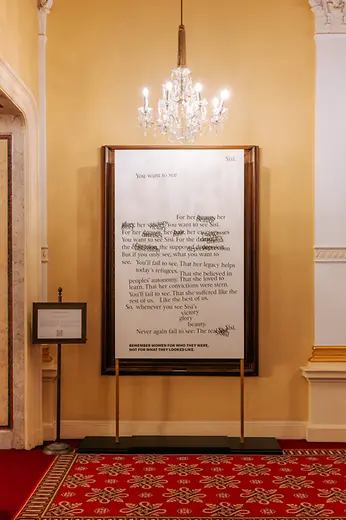 Sisi.
You want to see
For her beauty, her
glory, her victory. You want to see Sisi.
For her, her hair, her
You want to see Sisi. For the
the, the supposed
But if you only see, what you want to
see. You'll fail to see. That her legacy helps
today's refugees. That she believed in
peoples' autonomy. That she loved to
learn. That her convictions were stern.
You'll fail to see. That she suffered like the
rest of us. Like the best of us.
So, whenever you see Sisi's
victory
glory
beauty.
Never again fail to see: The real Sisi.
REMEMBER WOMEN FOR WHO THEY WERE,
NOT FOR WHAT THEY LOOKED LIKE.